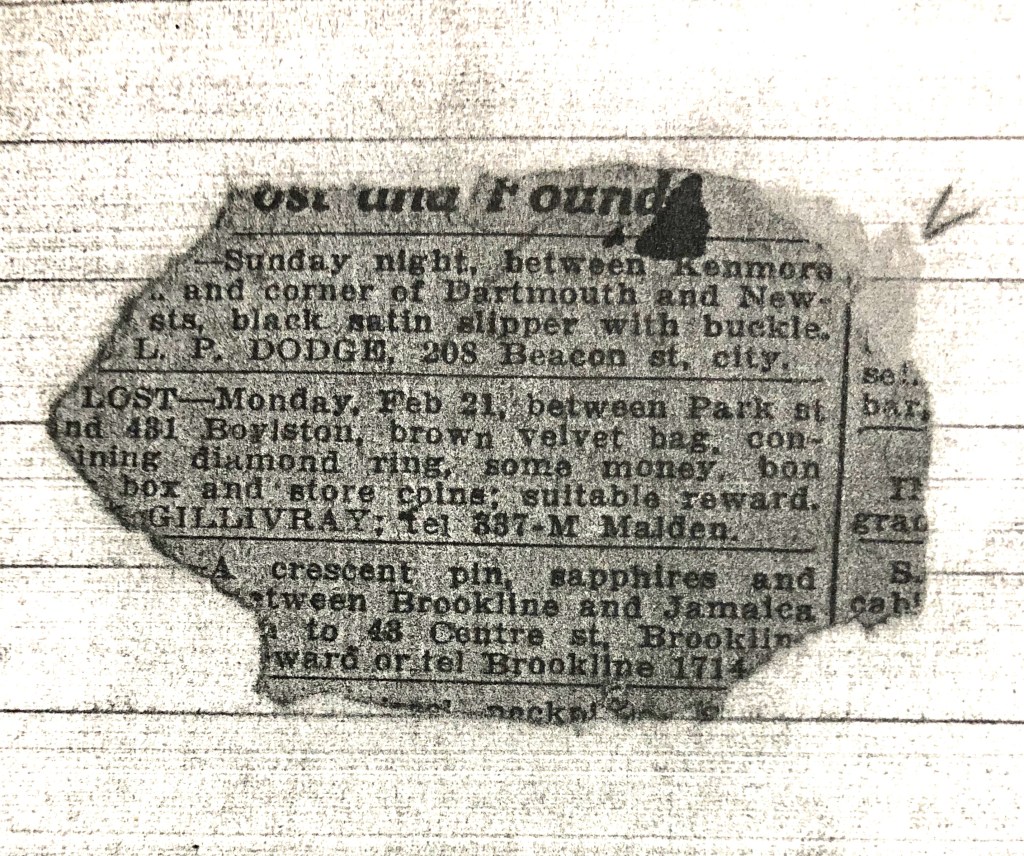 ost and Found
—Sunday night, between Kenmore
and corner of Dartmouth and New-
sts, black satin slipper with buckle.
L. P. DODGE, 208 Beacon st, city.
LOST—Monday, Feb 21, between Park st
nd 431 Boylston, brown velvet bag, con-
ining diamond ring, some money, bon
box and store coins; suitable reward.
GILLIVRAY; tel 337-M Malden.
—A crescent pin, sapphires and
etween Brookline and Jamaica
to 43 Centre st, Brooklin
ward or tel Brookline 1714
bar,
grad
S.